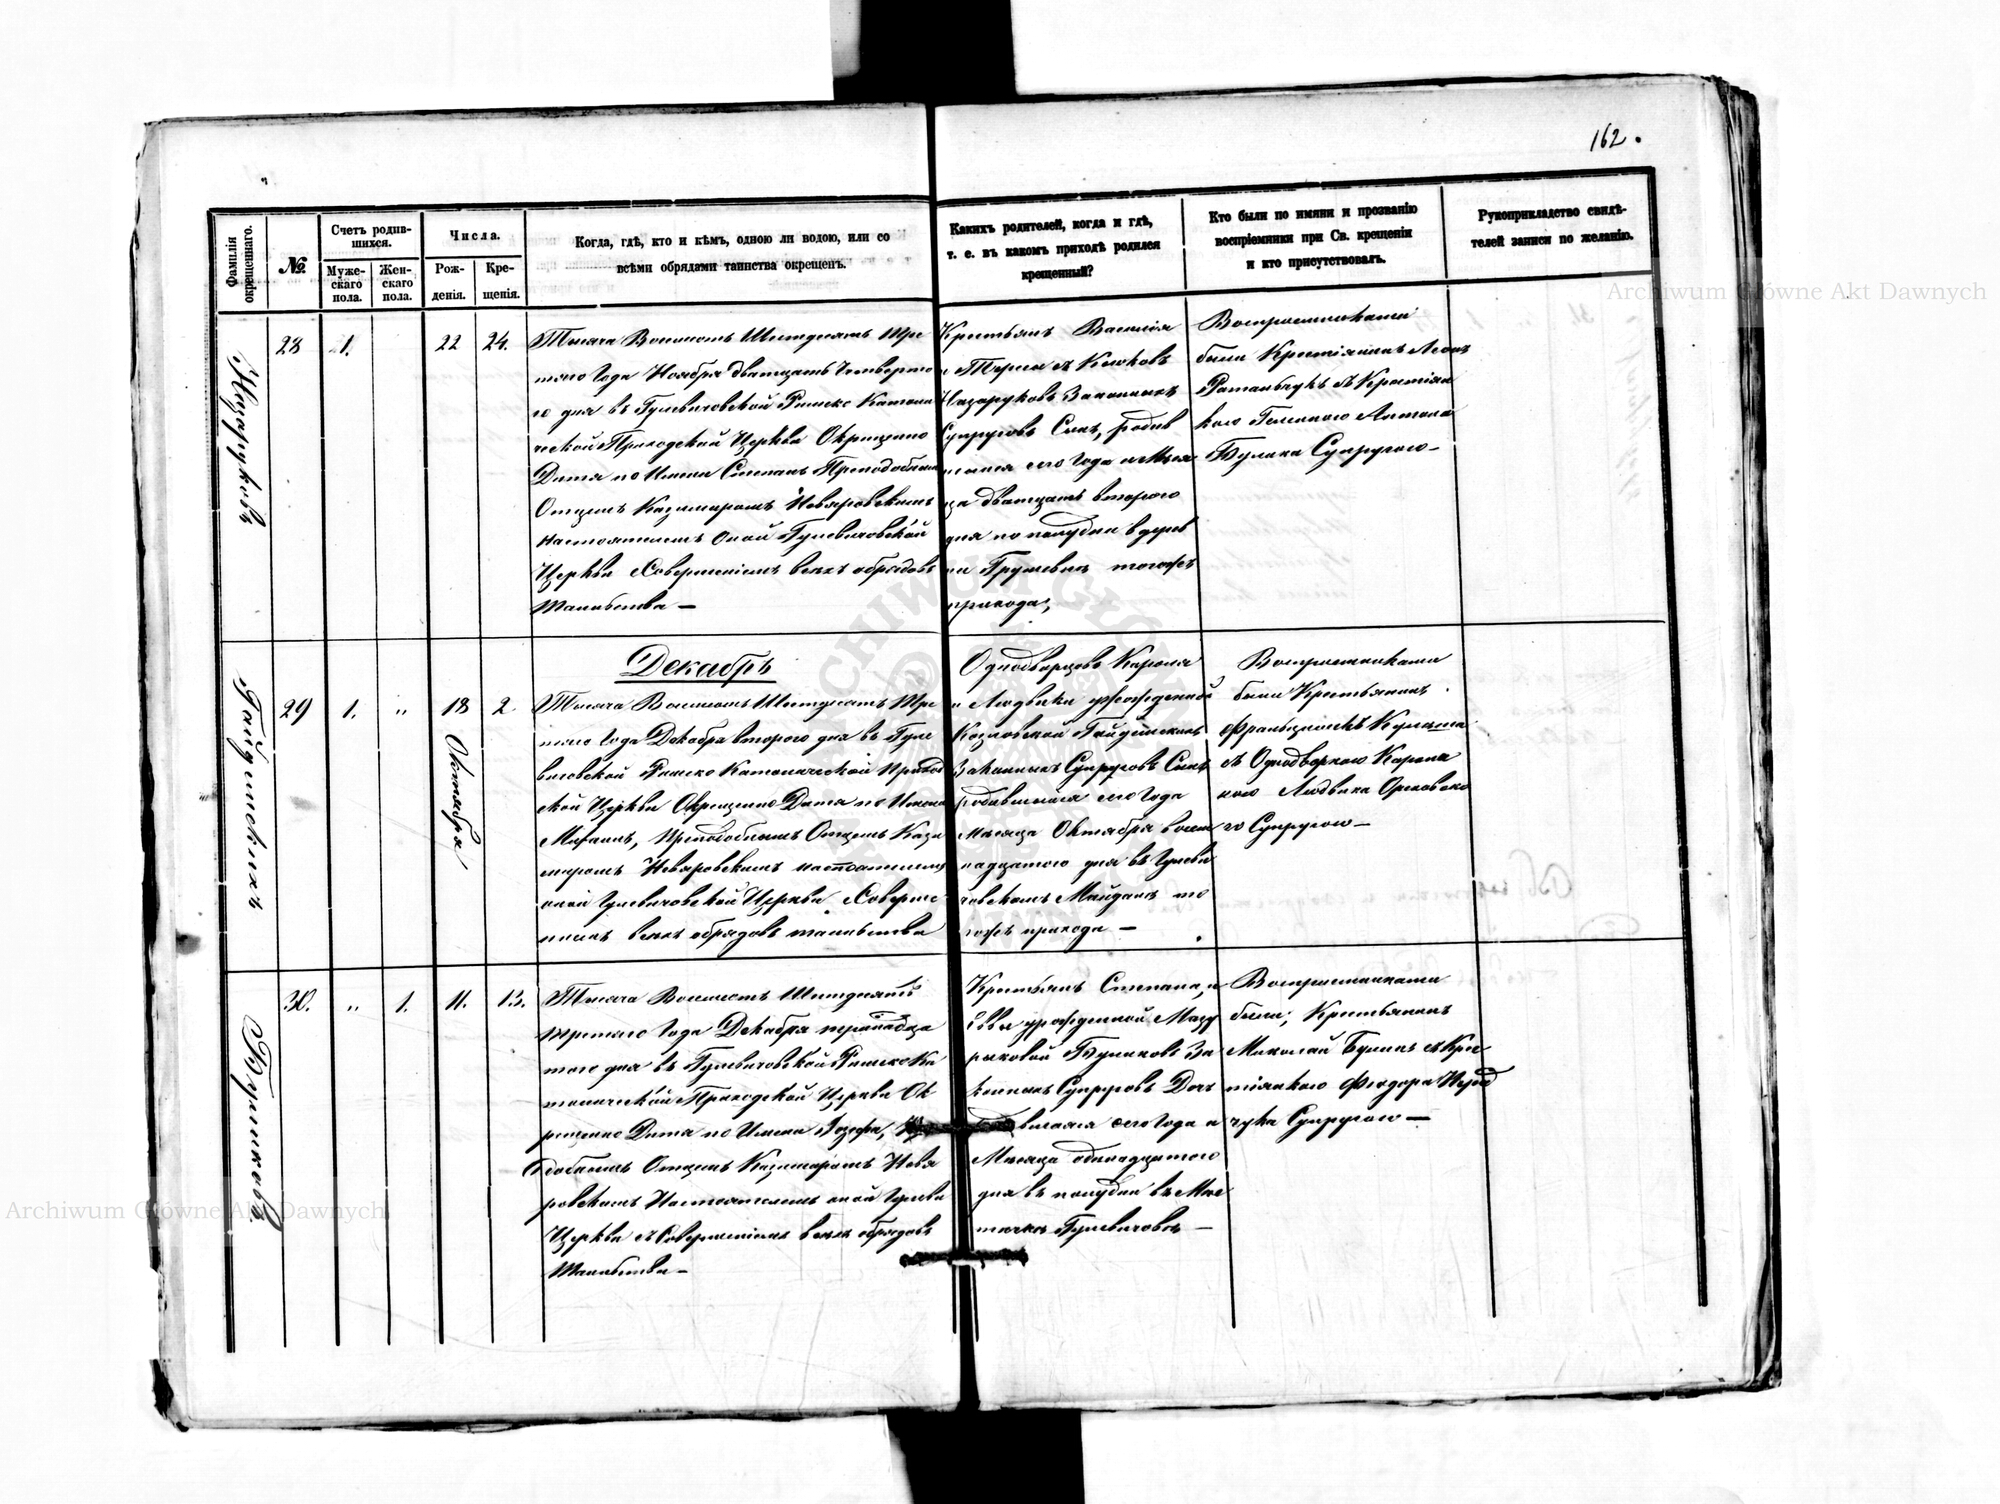 162.
Фамилія окрещеннаго.
№
Счетъ родив-
шихся.
Муже-
скаго
пола.
Жен-
скаго
пола.
Числа.
Рож-
денія.
Кре-
щенія.
Когда, гдѣ, кто и кѣмъ, одною ли водою, или со
всѣми обрядами таинства окрещенъ.
Какихъ родителей, когда и гдѣ,
т. е. въ какомъ приходѣ родился
крещенный?
Кто были по имяни и прозванію
воспріемники при Св. крещеніи
и кто присутствовалъ.
Рукоприкладство свидѣ-
телей записи по желанію.
Archiwum Główne Akt Dawnych
Назаруковъ
28
1.
22
24.
Тысяча Восемсотъ Шестдесятъ Тре-
тяго Года Ноября двадцать Четверто
го дня въ Гулевичовской Римско Катооли
ческой Приходской Церкви Окрещено
Дитя по Имени Степанъ Преподобнымъ
Отцемъ Казимиромъ Невяровскимъ
настоятелемъ оной Гулевичовской
Церкви Совершеніемъ всехъ обрядовъ
таинства —
Крестьянъ Василія
и
Назаруковъ Законныхъ
Супруговъ Сынъ, родив
шійся сего Года и Меся
ца двадцать втораго
дня по полудни въ дерев
ни тогожъ
прихода,
Воспріемниками
были Крестіянинъ
съ Крестіян
кою Антона
Булика Супругою —
Гайдинскихъ
29
1.
"
18
Октября
2.
Декабрь
Тысяча Восемсотъ Шестдесятъ Тре-
тяго Года Декабря втораго дня въ Гуле
вичовской Римско Католической Приход
ской Церкви Окрещено Дитя по Имени
Марцинъ, Преподобнымъ Отцемъ Кази
миромъ Невяровскимъ настоятелемъ
оной Гулевичовской Церкви Соверше
ніемъ всехъ обрядовъ таинства
Однодворцовъ Кароля
и Людвики урожденной
Козловской Гайдинскихъ
Законныхъ Супруговъ Сынъ
родившійся сего Года
Месяца Октября восем
надцатого дня въ Гулеви
човскомъ Майдане то
гожъ прихода —
Воспріемниками
были Крестьянинъ
Францишекъ
съ Однодворкою Кароля
кою Людвика
го Супругою —
Буликовъ
30.
"
1.
11.
13.
Тысяча Восемсотъ Шестдесятъ
третяго Года Декабря
того дня въ Гулевичовской Римско Ка
толической Приходской Церкви Ок
рещено Дитя по Имени Іозефа, Пре
подобнымъ Отцемъ Казимиромъ Невя
ровскимъ Настоятелемъ оной Гулеви
Церкви Совершеніемъ всехъ обрядовъ
таинства —
Крестьянъ Степана, и
Еввы урожденной Мазу
рыковой Буликовъ За
конныхъ Супруговъ Дочь
родившаяся сего Года и
Месяца одинадцатого
дня въ полудни въ Мес
течке Гулевичове —
Воспріемниками
были; Крестьянинъ
Миколай Буликъ съ Кре
стіянкою Фіодора
чука Супругою —
Archiwum Główne Akt Dawnych